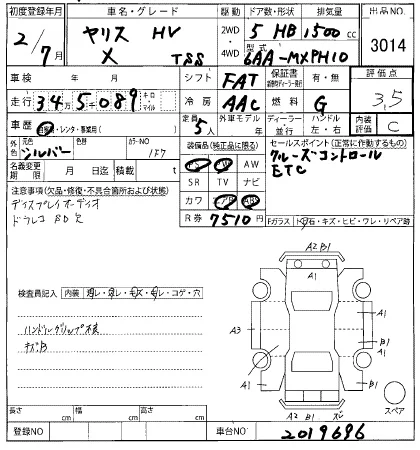 初度登録年月 車名・グレード 駆動 ドア数・形状 排気量 出品NO.
2/7月 ヤリス HV 2WD 5 HB 1500cc 3014
X TSS 4WD 型式 6AA-MXPH10
車検 年 月 シフト FAT 保証書 有・無 評価点
走行 34万5千089 キロ・マイル 冷房 AAC 燃料 G 3.5
車歴 自家用・レンタ・事業用( ) 定員 5人 外車モデル 年 ディーラー・並行 ハンドル 左・右 内装評価 C
外色 元色 シルバー カラーNO 1F7 装備品(純正品に限る) セールスポイント(正常に作動するもの)
AW クルーズコントロール
名義変更期限 月 日迄 積載 t SR TV ナビ ETC
注意事項(欠品・修復・不具合箇所および状態) カワ
ディスプレイオーディオ R券 7510円 Fガラス 石・キズ・ヒビ・ワレ・リペア跡
ドラレコ
A2 B1
A1
検査員記入 内装 コゲ・穴
A1
A3 A1 B1
ハンドルグリップ
キズB
A1
スペア
A2 B1
長さ cm 幅 cm 高さ cm
登録NO 車台NO 2019696